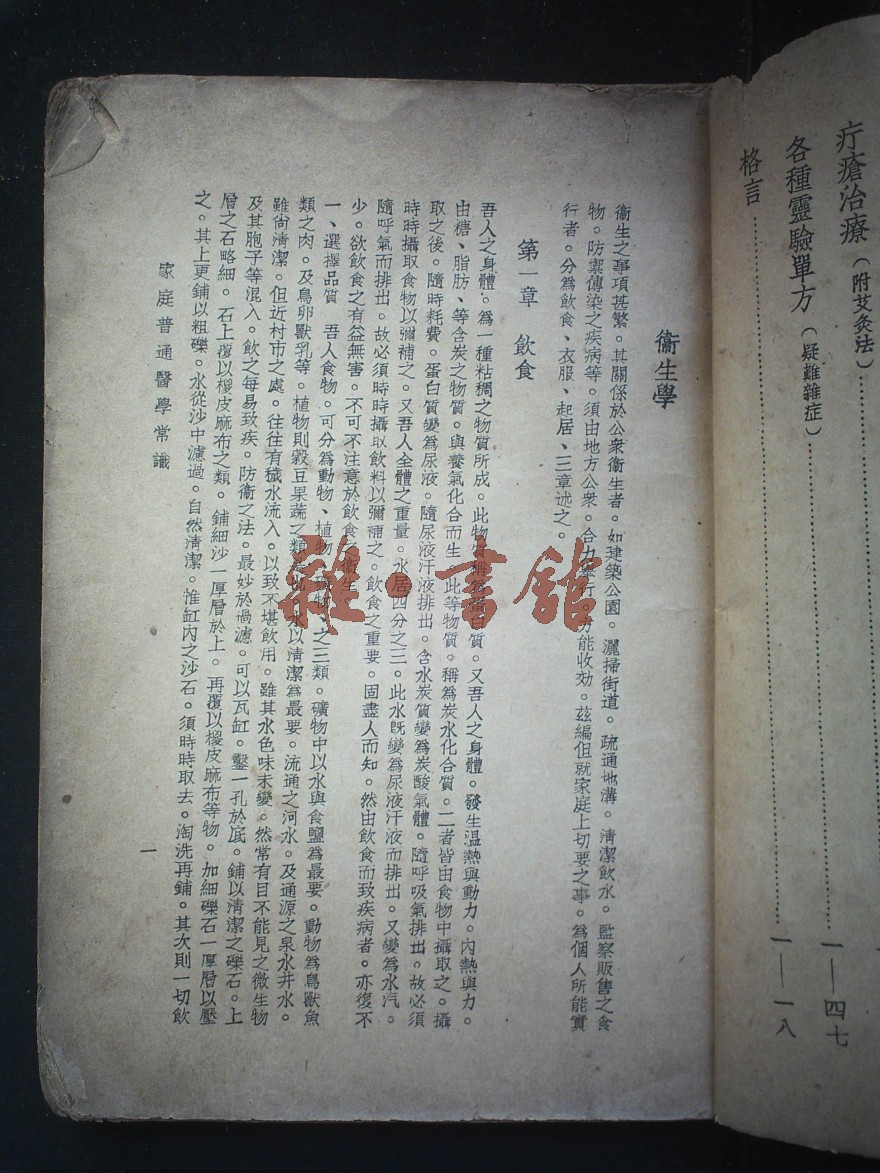 疔瘡治療（附艾灸法）
各種靈驗單方（疑難雜症） 一—四七
格言 一—一八
衞生學
衞生之事項甚繁。其關係於公衆衞生者。如建築公園。灑掃街道。疏通地溝。淸潔飲水。監察販售之食
物。防禦傳染之疾病等。須由地方公衆。合力舉行。方能收効。玆編但就家庭上切要之事。爲個人所能實
行者。分爲飲食、衣服、起居、三章述之。
第一章　飲食
吾人之身體。爲一種粘稠之物質所成。此物質稱爲蛋白質。又吾人之身體。發生温熱與動力。內熱與力。
由糖、脂肪、等含炭之物質。與養氣化合而生。此等物質。稱爲炭水化合質。二者皆由食物中攝取之。攝
取之後。隨時耗費。蛋白質變爲尿液。隨尿液汗液排出。含水炭質變爲炭酸氣體。隨呼吸氣排出。故必須
時時攝取食物以彌補之。又吾人全體之重量。水居四分之三。此水旣變爲尿液汗液而排出。又變爲水汽。
隨呼氣而排出。故必須時時攝取飲料以彌補之。飲食之重要。固盡人而知。然由飲食而致疾病者。亦復不
少。欲飲食之有益無害。不可不注意於飲食之衞生。
一、選擇品質　吾人食物。可分爲動物、植物、礦物、之三類。礦物中以水與食鹽爲最要。動物爲鳥獸魚
類之肉。及鳥卵獸乳等。植物則穀豆果蔬之類是也。水以淸潔爲最要。流通之河水。及通源之泉水井水。
雖尙淸潔。但近村市之處。往往有穢水流入。以致不堪飲用。雖其水色味未變。然常有目不能見之微生物
及其胞子等混入。飲之每易致疾。防衞之法。最妙於過濾。可以瓦缸。鑿一孔於底。鋪以淸潔之礫石。上
層之石略細。石上覆以椶皮麻布之類。鋪細沙一厚層於上。再覆以椶皮麻布等物。加細礫石一厚層以壓
之。其上更鋪以粗礫。水從沙中濾過。自然淸潔。惟缸內之沙石。須時時取去。淘洗再鋪。其次則一切飲
家庭普通醫學常識
一
雜·書館